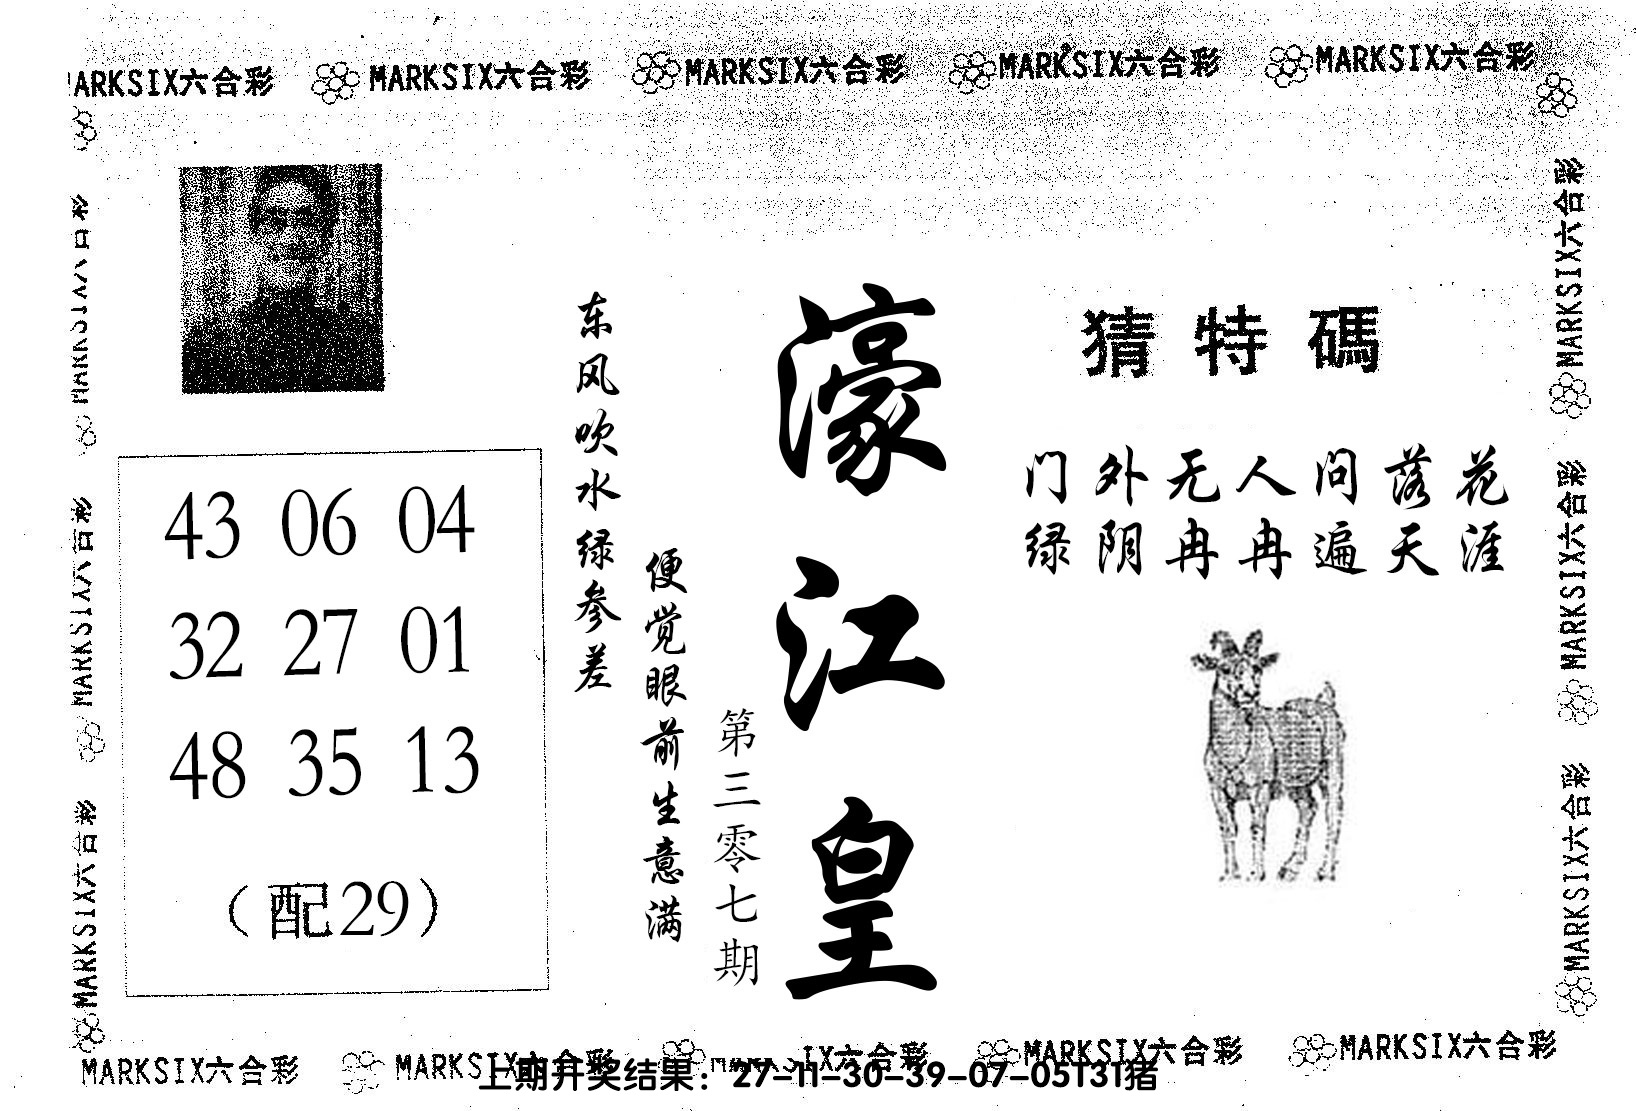 MARKSIX六合彩 MARKSIX六合彩 MARKSIX六合彩 MARKSIX六合彩 MARKSIX六合彩
猜特碼
门外无人问落花
绿阴冉冉遍天涯
濠江皇
第三零七期
东风吹水绿参差
便觉眼前生意满
43 06 04
32 27 01
48 35 13
（配29）
MARKSIX六合彩
MARKSIX六合彩
MARKSIX六合彩
MARKSIX六合彩
MARKSIX六合彩
MARKSIX六合彩
MARKSIX六合彩 MARKSIX六合彩 IX六合彩 MARKSIX六合彩 MARKSIX六合彩
上期开奖结果：27-11-30-39-07-05T31猪